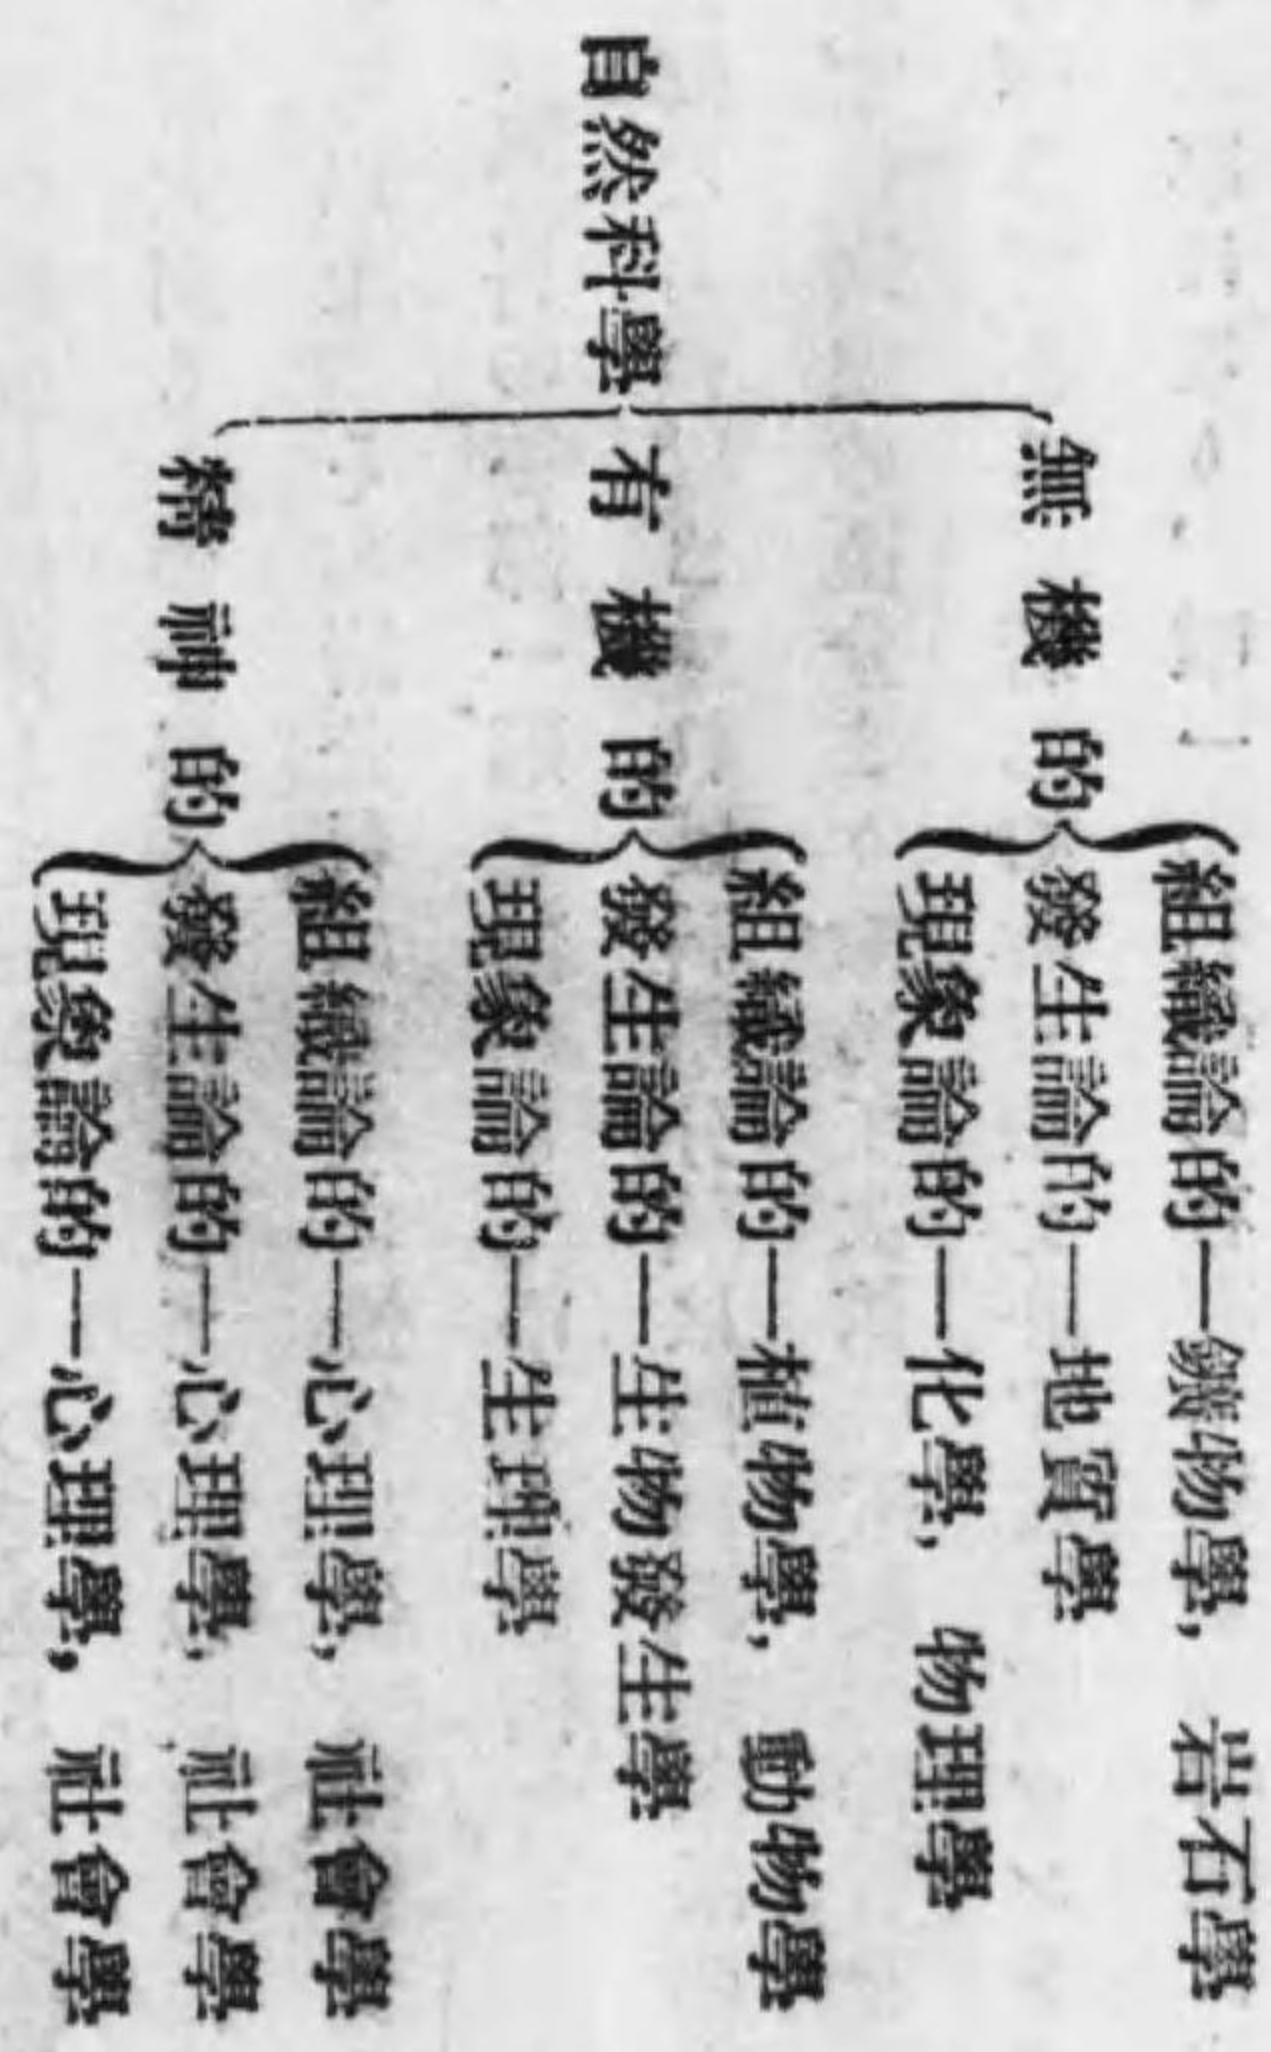 自然科學
無機的
組織論的—鑛物學，岩石學
發生論的—地質學
現象論的—化學，物理學
有機的
組織論的—植物學，動物學
發生論的—生物發生學
現象論的—生理學
精神的
組織論的—心理學，社會學
發生論的—心理學，社會學
現象論的—心理學，社會學